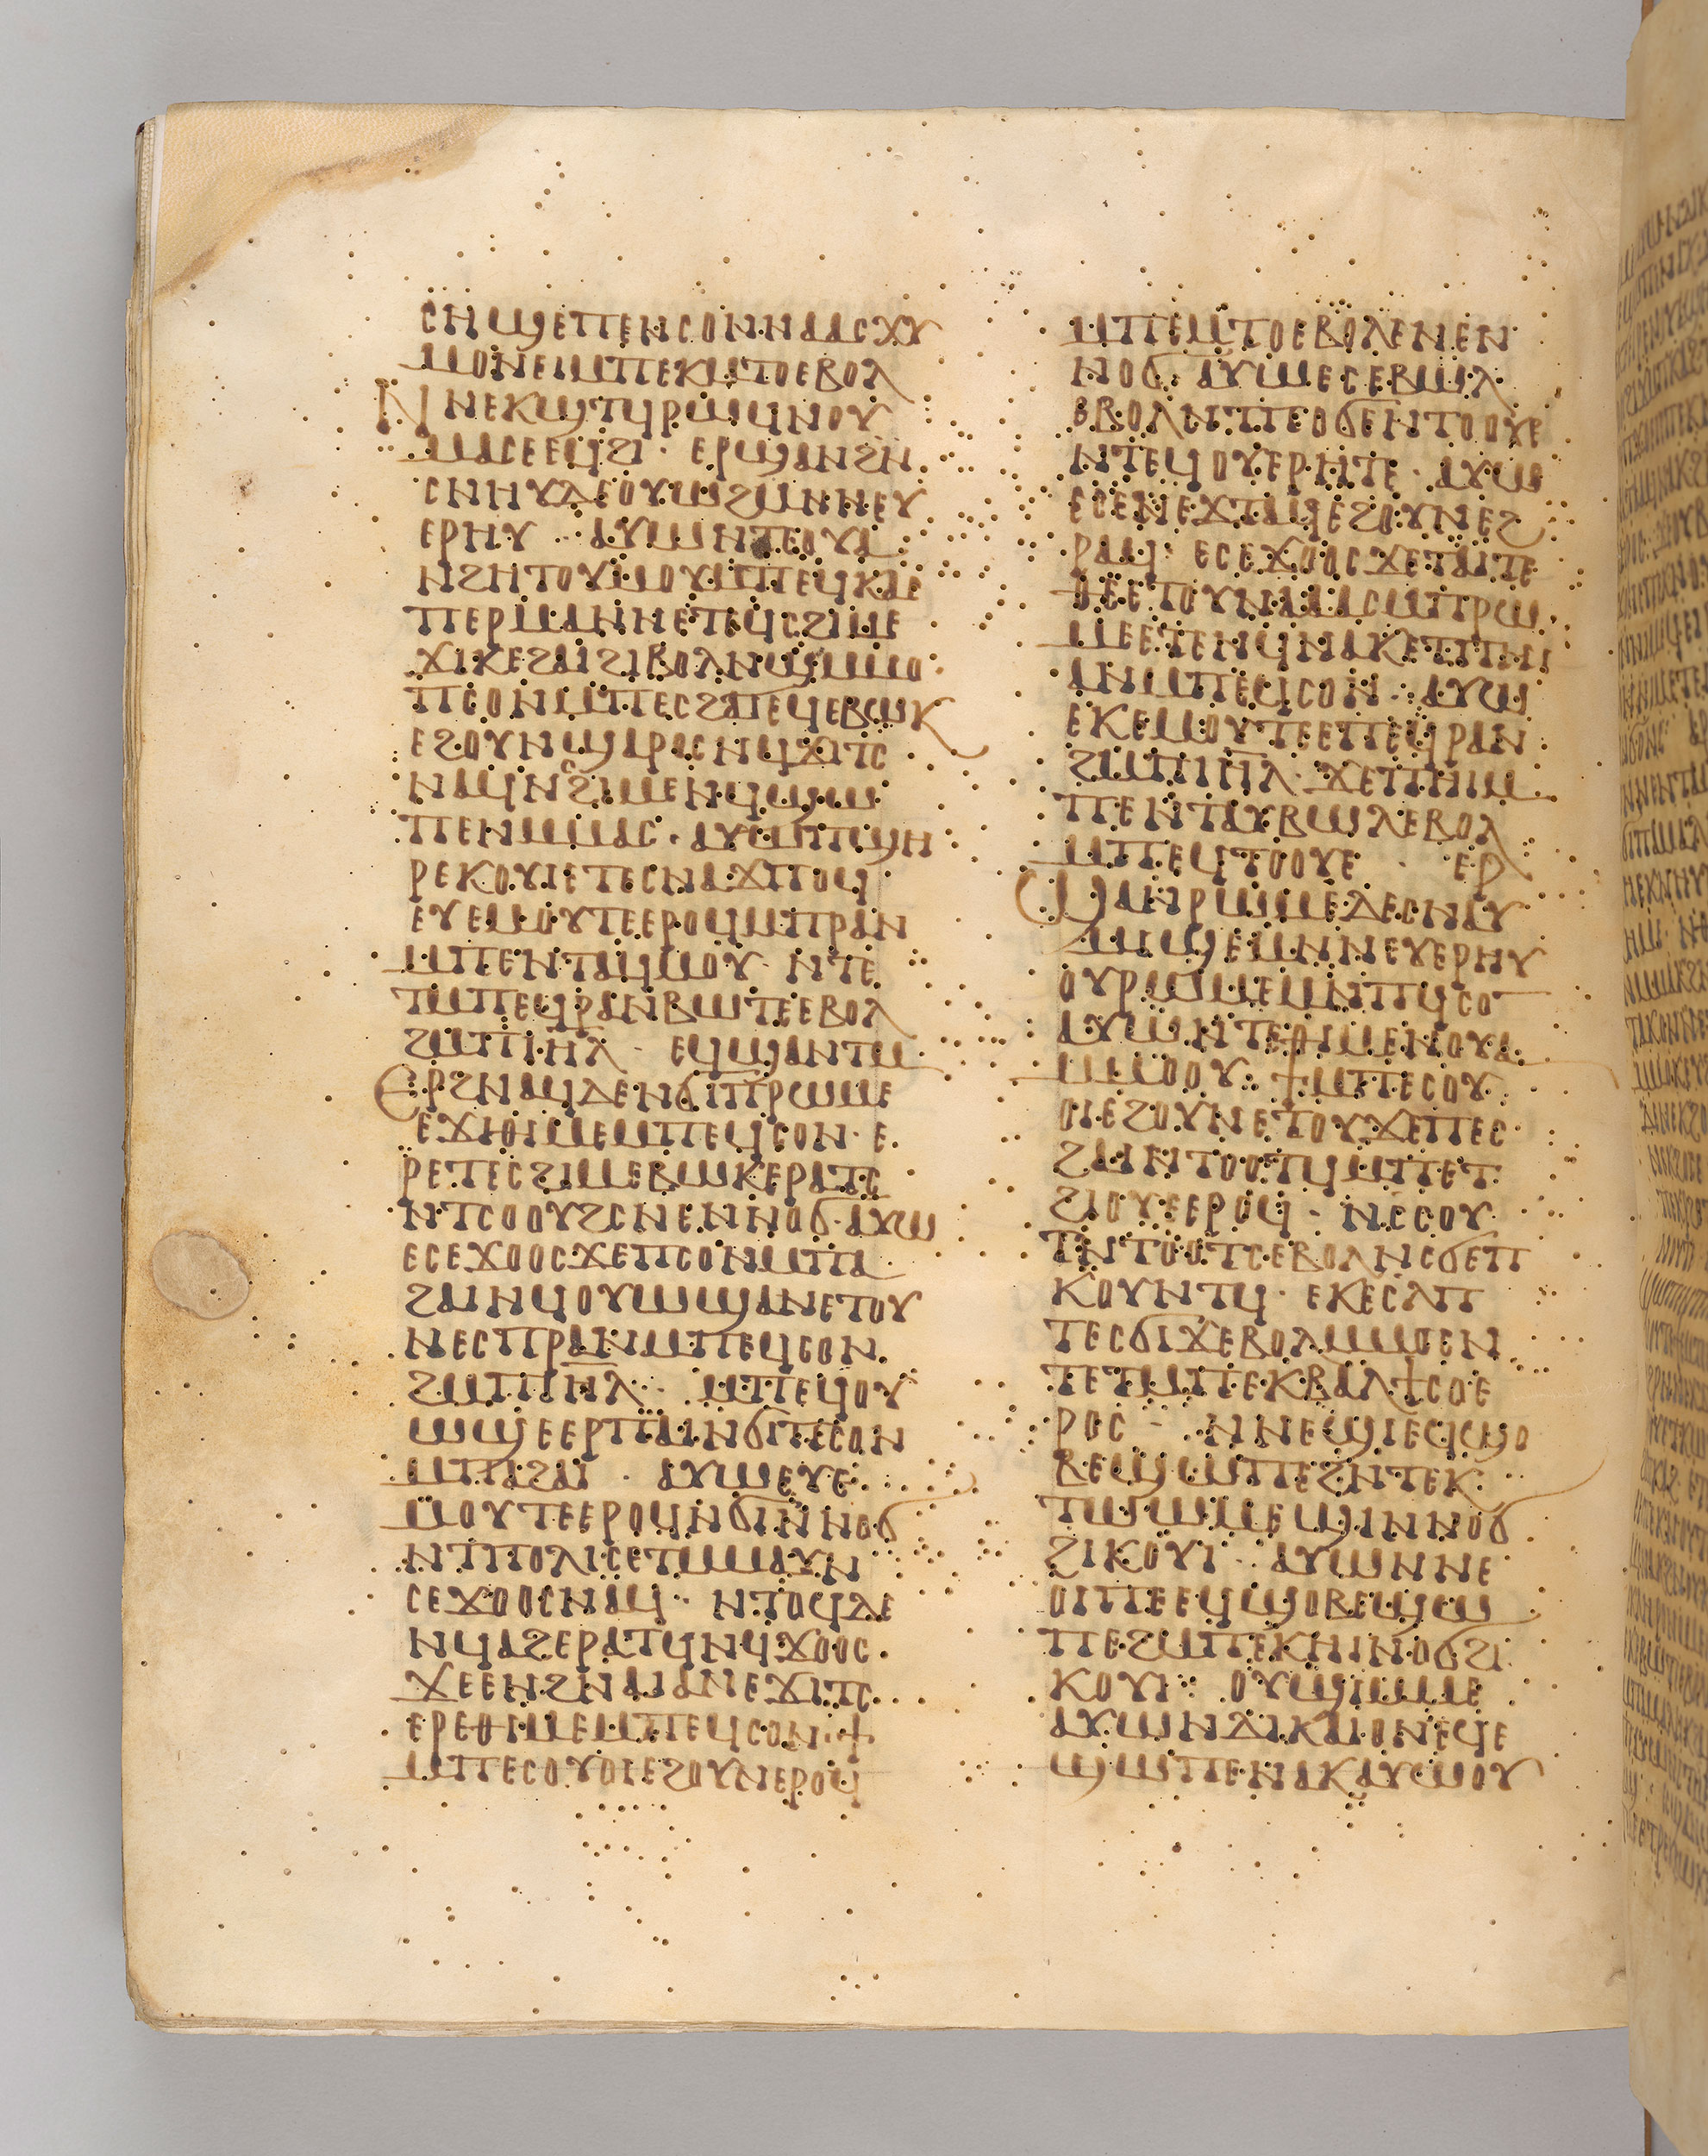 ⲥⲛϣⲉⲡⲉⲛⲥⲟⲛⲛⲁⲁⲥⲭⲩ
ⲙⲟⲛⲉⲓⲙⲡⲉⲕⲙⲧⲟⲉⲃⲟⲗ
ⲛⲛⲉⲕϣⲧϥⲣⲱϥⲛⲟⲩ
ⲙⲁⲥⲉⲉϥϩⲓ · ⲉⲣϣⲁⲛϩⲛ
ⲥⲛⲏⲩⲇⲉⲟⲩⲱϩⲙⲛⲛⲉⲩ
ⲉⲣⲏⲩ ·· ⲁⲩⲱⲛⲧⲉⲟⲩⲁ
ⲛϩⲏⲧⲟⲩⲙⲟⲩⲙⲡⲉϥⲕⲁⲉ
ⲡⲉⲣⲙⲁⲛⲛⲉⲧⲉϥⲥϩⲓⲙⲉ
ϫⲓⲕⲉϩⲁⲓϩⲓⲃⲟⲗⲛϣⲙⲙⲟ
ⲡⲥⲟⲛⲙⲡⲉⲥϩⲁⲓⲉϥⲉⲃⲱⲕ
ⲉϩⲟⲩⲛϣⲁⲣⲟⲥⲛϥϫⲓⲧⲥ
ⲛⲁϥⲛⲥϩⲓⲙⲉⲛϥϣⲱ
ⲡⲉⲛⲙⲙⲁⲥ · ⲁⲩⲱⲡϣⲏ
ⲣⲉⲕⲟⲩⲓⲉⲧⲉⲥⲛⲁϫⲡⲟϥ
ⲉⲩⲉⲙⲟⲩⲧⲉⲉⲣⲟϥⲙⲡⲣⲁⲛ
ⲙⲡⲉⲛⲧⲁϥⲙⲟⲩ · ⲛⲧⲉ
ⲧⲙⲡⲉϥⲣⲁⲛⲃⲱⲧⲉⲉⲃⲟⲗ
ϩⲙⲡⲓⲏⲗ · ⲉϥϣⲁⲛⲧⲙ
ⲉⲣϩⲛⲁϥⲇⲉⲛϭⲓⲡⲣⲱⲙⲉ
ⲉϫⲓⲑⲓⲙⲉⲙⲡⲉϥⲥⲟⲛ · ⲉ
ⲣⲉⲧⲉⲥϩⲓⲙⲉⲃⲱⲕⲉⲣⲁⲧⲥ
ⲛⲧⲥⲟⲟⲩϩⲥⲛⲉⲛⲛⲟϭ · ⲁⲩⲱ
ⲉⲥⲉϫⲟⲟⲥϫⲉⲡⲥⲟⲛⲙⲡⲁ
ϩⲁⲓⲛϥⲟⲩⲱϣⲁⲛⲉⲧⲟⲩ
ⲛⲉⲥⲡⲣⲁⲛⲙⲡⲉϥⲥⲟⲛ
ϩⲙⲡⲓⲏⲗ ·· ⲙⲡⲉϥⲟⲩ
ⲱϣⲉⲉⲣⲡⲁⲓⲛϭⲓⲡⲥⲟⲛ
ⲙⲡⲁϩⲁⲓ · ⲁⲩⲱⲉⲩⲉ
ⲙⲟⲩⲧⲉⲉⲣⲟϥⲛϭⲓⲛⲛⲟϭ
ⲛⲧⲡⲟⲗⲓⲥⲉⲧⲙⲙⲁⲩⲛ
ⲥⲉϫⲟⲟⲥⲛⲁϥ ·· ⲛⲧⲟϥⲇⲉ
ⲛϥⲁϩⲉⲣⲁⲧϥⲛϥϫⲟⲟⲥ
ϫⲉⲉⲛϩⲛⲁⲓⲁⲛⲉϫⲓⲧⲥ
ⲉⲣⲉⲑⲓⲙⲉⲙⲡⲉϥⲥⲟⲛϯ
ⲙⲡⲉⲥⲟⲩⲟⲓⲉϩⲟⲩⲛⲉⲣⲟϥ
ⲙⲡⲉⲙⲧⲟⲉⲃⲟⲗⲉⲛⲉⲛ
ⲛⲟϭ · ⲁⲩⲱⲉⲥⲉⲃⲱⲗ
ⲉⲃⲟⲗⲙⲡⲉⲟϭⲉⲛⲧⲟⲟⲩⲉ
ⲛⲧⲉϥⲟⲩⲉⲣⲏⲧⲉ · ⲁⲩⲱ
ⲉⲥⲉⲛⲉϫⲧⲁϥⲉϩⲟⲩⲛⲉϩ
ⲣⲁϥ · ⲉⲥⲉϫⲟⲟⲥϫⲉⲧⲁⲓⲧⲉ
ⲑⲉⲉⲧⲟⲩⲛⲁⲁⲁⲥⲙⲡⲣⲱ
ⲙⲉⲉⲧⲉⲛϥⲛⲁⲕⲉⲧⲡⲏⲓ
ⲁⲛⲙⲡⲉϥⲥⲟⲛ · ⲁⲩⲱ
ⲉⲕⲉⲙⲟⲩⲧⲉⲉⲡⲉϥⲣⲁⲛ
ϩⲙⲡⲓⲏⲗ · ϫⲉⲡⲏⲓⲙ
ⲡⲉⲛⲧⲁⲩⲃⲱⲗⲉⲃⲟⲗ
ⲙⲡⲉϥⲧⲟⲟⲩⲉ · ⲉⲣ
ϣⲁⲛⲣⲱⲙⲉⲇⲉⲥⲛⲁⲩ
ⲙⲓϣⲉⲙⲛⲛⲉⲩⲉⲣⲏⲩ
ⲟⲩⲣⲱⲙⲉⲙⲛⲡϥⲥⲟ
ⲁⲩⲱⲛⲧⲉⲑⲓⲙⲉⲛⲟⲩⲁ
ⲙⲙⲟⲟⲩ · ϯⲙⲡⲉⲥⲟⲩ
ⲟⲓⲉϩⲟⲩⲛⲉⲧⲟⲩϫⲉⲡⲉⲥ
ϩⲁⲓⲛⲧⲟⲟⲧϥⲙⲡⲉⲧ
ϩⲓⲟⲩⲉⲉⲣⲟϥ · ⲛⲥⲥⲟⲩ
ⲧⲛⲧⲟⲟⲧⲥⲉⲃⲟⲗⲛⲥϭⲉⲡ
ⲕⲟⲩⲛⲧϥ · ⲉⲕⲉⲥⲗⲡ
ⲧⲉⲥϭⲓϫⲉⲃⲟⲗⲙⲙⲟⲥⲛ
ⲛⲉⲧⲙⲡⲉⲕⲃⲁⲗϯⲥⲟⲉ
ⲣⲟⲥ – ⲛⲛⲉϣⲓⲉϥϣⲟ
ⲃⲉϣⲱⲡⲉϩⲛⲧⲉⲕ
ⲧⲱⲱⲙⲉϣⲓⲛⲛⲟϭ
ϩⲓⲕⲟⲩⲓ · ⲁⲩⲱⲛⲛⲉ
ⲟⲓⲡⲉⲉϥϣⲟⲃⲉϣⲱ
ⲡⲉϩⲙⲡⲉⲕⲏⲓⲛⲟϭϩⲓ
ⲕⲟⲩⲓ ·· ⲟⲩϣⲓⲙⲙⲉ
ⲁⲩⲱⲛⲇⲓⲕⲁⲓⲟⲛⲉϥⲉ
ϣⲱⲡⲉⲛⲁⲕⲁⲩⲱⲟⲩ